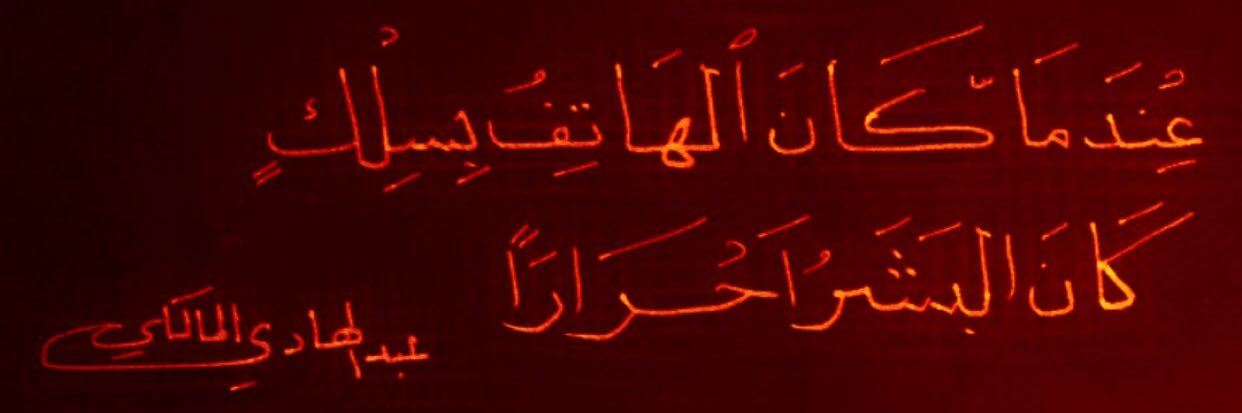 عِندَمَا كَانَ ٱلهَاتِفُ بِسِلْكٍ
كَانَ البَشَرُ احْرَارًا
عبد الهادي المالكي